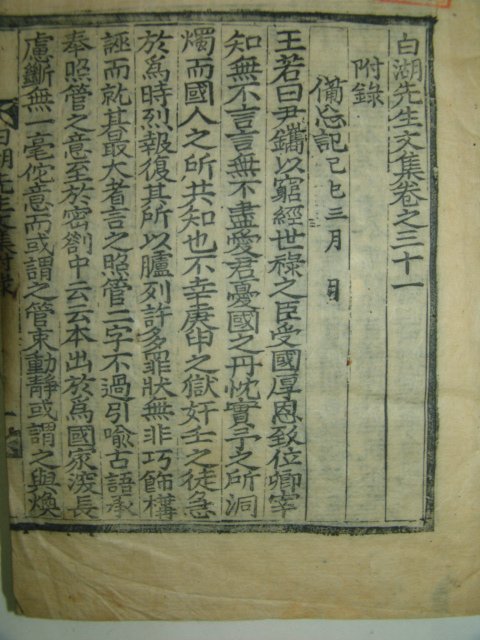 白湖先生文集卷之三十一
附錄
備忘記己巳三月 日
王若曰尹鑴以窮經世祿之臣受國厚恩致位卿宰
知無不言言無不盡愛君憂國之丹忱實予之所洞
燭而國人之所共知也不幸庚申之獄奸壬之徒急
於爲時烈報復其所以臚列許多罪狀無非巧飾構
誣而就其最大者言之照管二字不過引喩古語承
奉照管之意至於密劄中云云本出於爲國家深長
慮斷無一毫佗意而或謂之管束動靜或謂之與煥
白湖先生文集附錄 一